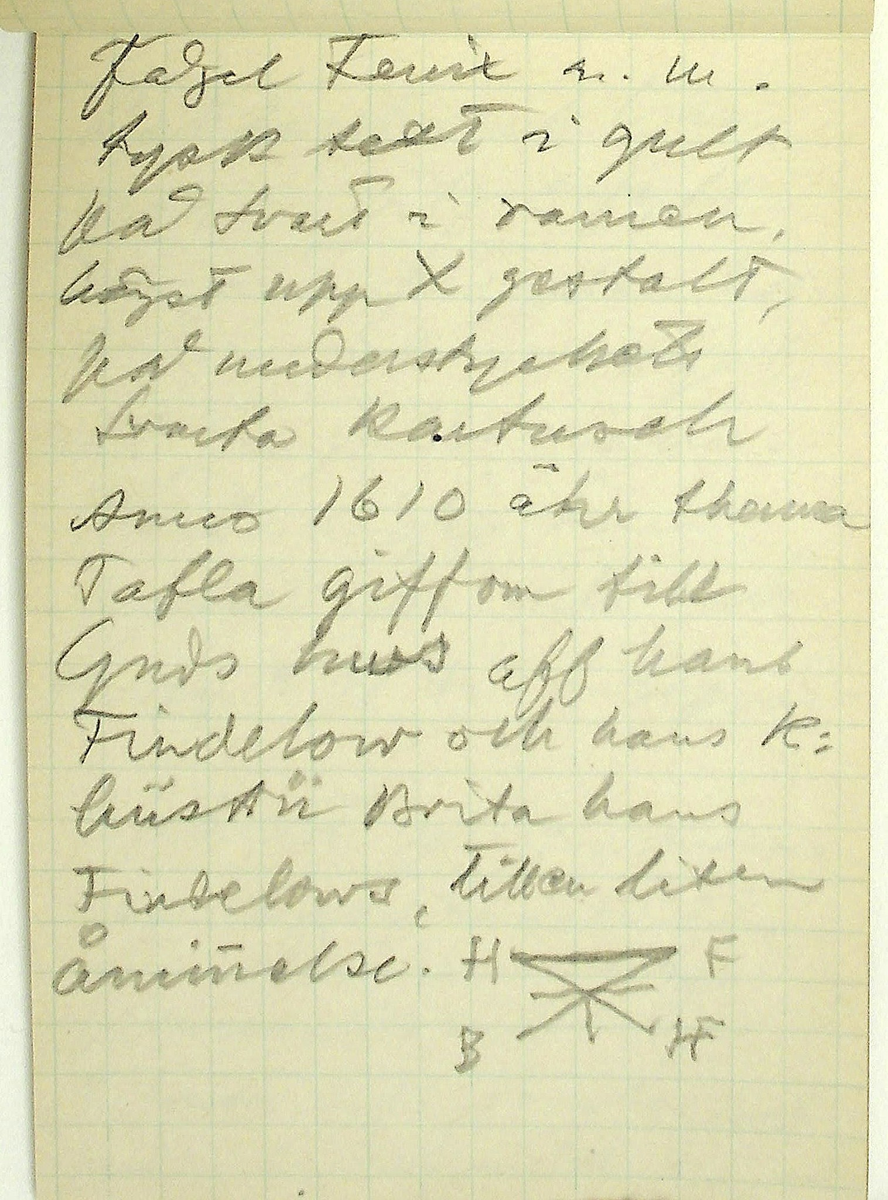 Fågel Fenix m. m.
tysk text i gult
på svart i ramen,
högst upp X gestalt,
på understyckets
svarta kartusch
Anno 1610 ähr thenna
Tafla giffom till
Guds huus aff hans
Findelow och hans K:
hüsttü Brita hans
Findelows, tillen liten
åmin̄else. H F
B HF